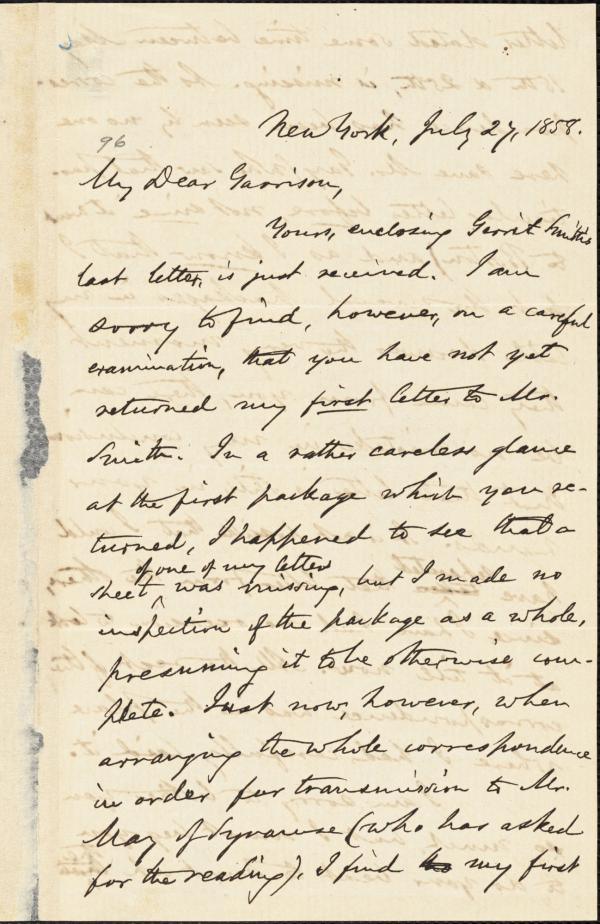 New York, July 27, 1858.
96
My Dear Garrison,
Yours, enclosing Gerrit Smith's
last letter, is just received. I am
sorry to find, however, on a careful
examination, that you have not yet
returned my first letter to Mr.
Smith. In a rather careless glance
at the first package which you re-
turned, I happened to see that a
of one of my letters
sheet ^ was missing, but I made no
inspection of the package as a whole,
presuming it to be otherwise com-
plete. Just now, however, when
arranging the whole correspondence
in order for transmission to Mr.
May of Syracuse (who has asked
for the reading), I find my first